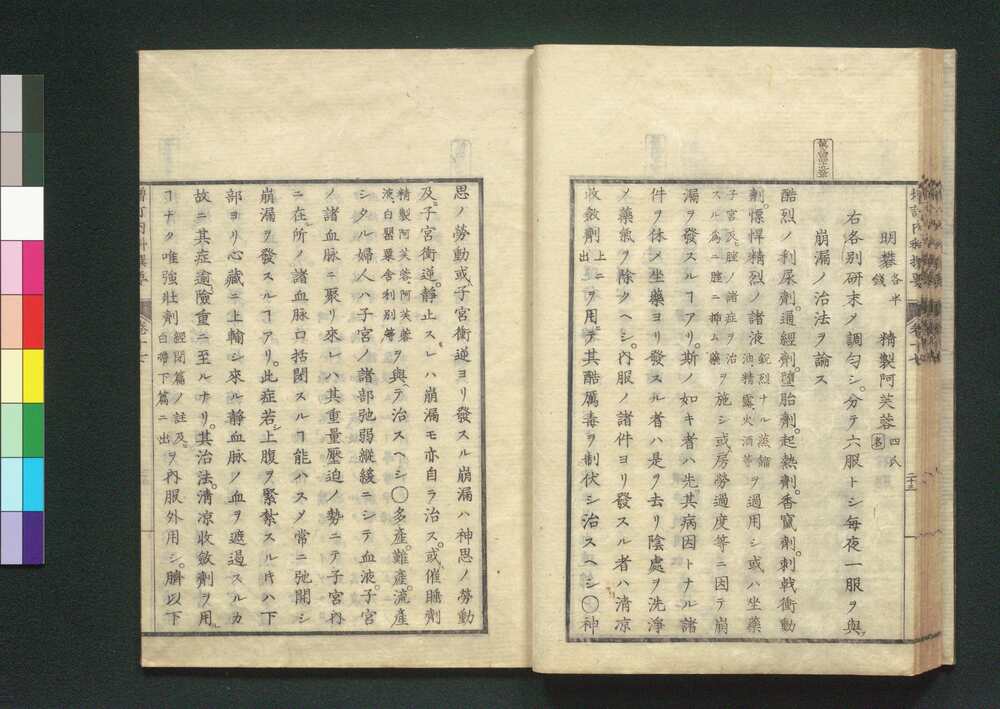 明礬 各半錢 精製阿芙蓉 四氏
右各別研末ノ調勻シ。分テ六服トシ毎夜一服ヲ與フ
崩漏ノ治法ヲ論ス
酷烈ノ利尿劑。通經劑。墮胎劑。起熱劑。香竄劑。刺戟衝動
劑。慓悍精烈ノ諸液 鋭烈ナル蒸餾油精露、火酒等 ヲ過用シ或ハ坐藥
子宮及ビ膣ノ諸症ヲ治スル爲ニ膣ニ挿ム藥 ヲ施シ或ハ房勞過度等ニ因テ崩
漏ヲ發スルヿアリ。斯ノ如キ者ハ先其病因トナル諸
件ヲ休メ坐藥ヨリ發スル者ハ是ヲ去リ陰處ヲ洗淨
メ藥氣ヲ除クヘシ。內服ノ諸件ヨリ發スル者ハ淸凉
收斂劑 上ニ出 ヲ用テ其酷厲毒ヲ制伏シ治スヘシ◯神
思ノ勞動或ハ子宮衝逆ヨリ發スル崩漏ハ神思ノ勞動
及ビ子宮衝逆。靜止スレハ崩漏モ亦自ラ治ス。或ハ催睡劑
精製阿芙蓉、阿芙蓉液、白罌粟舎利別等 ヲ與ヘテ治スヘシ◯多產。難產。流產
シタル婦人ハ子宮ノ諸部弛弱縱緩ニシテ血液。子宮
ノ諸血脉ニ聚リ來レハ其重量壓迫ノ勢ニテ子宮內
ニ在ル所ノ諸血脉口括閉スルヿ能ハスメ常ニ弛開シ
崩漏ヲ發スルヿアリ。此症若シ上腹ヲ緊紮スル片ハ下
部ヨリ心藏ニ上輸シ來ル靜血脉ノ血ヲ遮遏スルカ
故ニ其症逾險重ニ至ルナリ。其治法。淸凉收斂劑ヲ用ル
ヿナク唯強壯劑 經閉篇ノ註及ビ白帶下篇ニ出 ヲ內服外用シ。臍以下